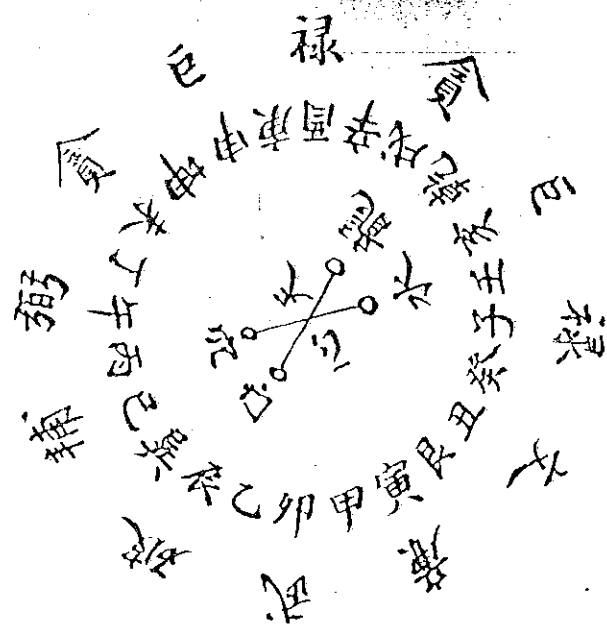 禄
貪
巨
禄
文
廉
武
破
輔
弼
貪
巨
子癸丑艮寅甲卯乙辰巽巳丙午丁未坤申庚酉辛戌乾亥壬
龍
水
穴
向